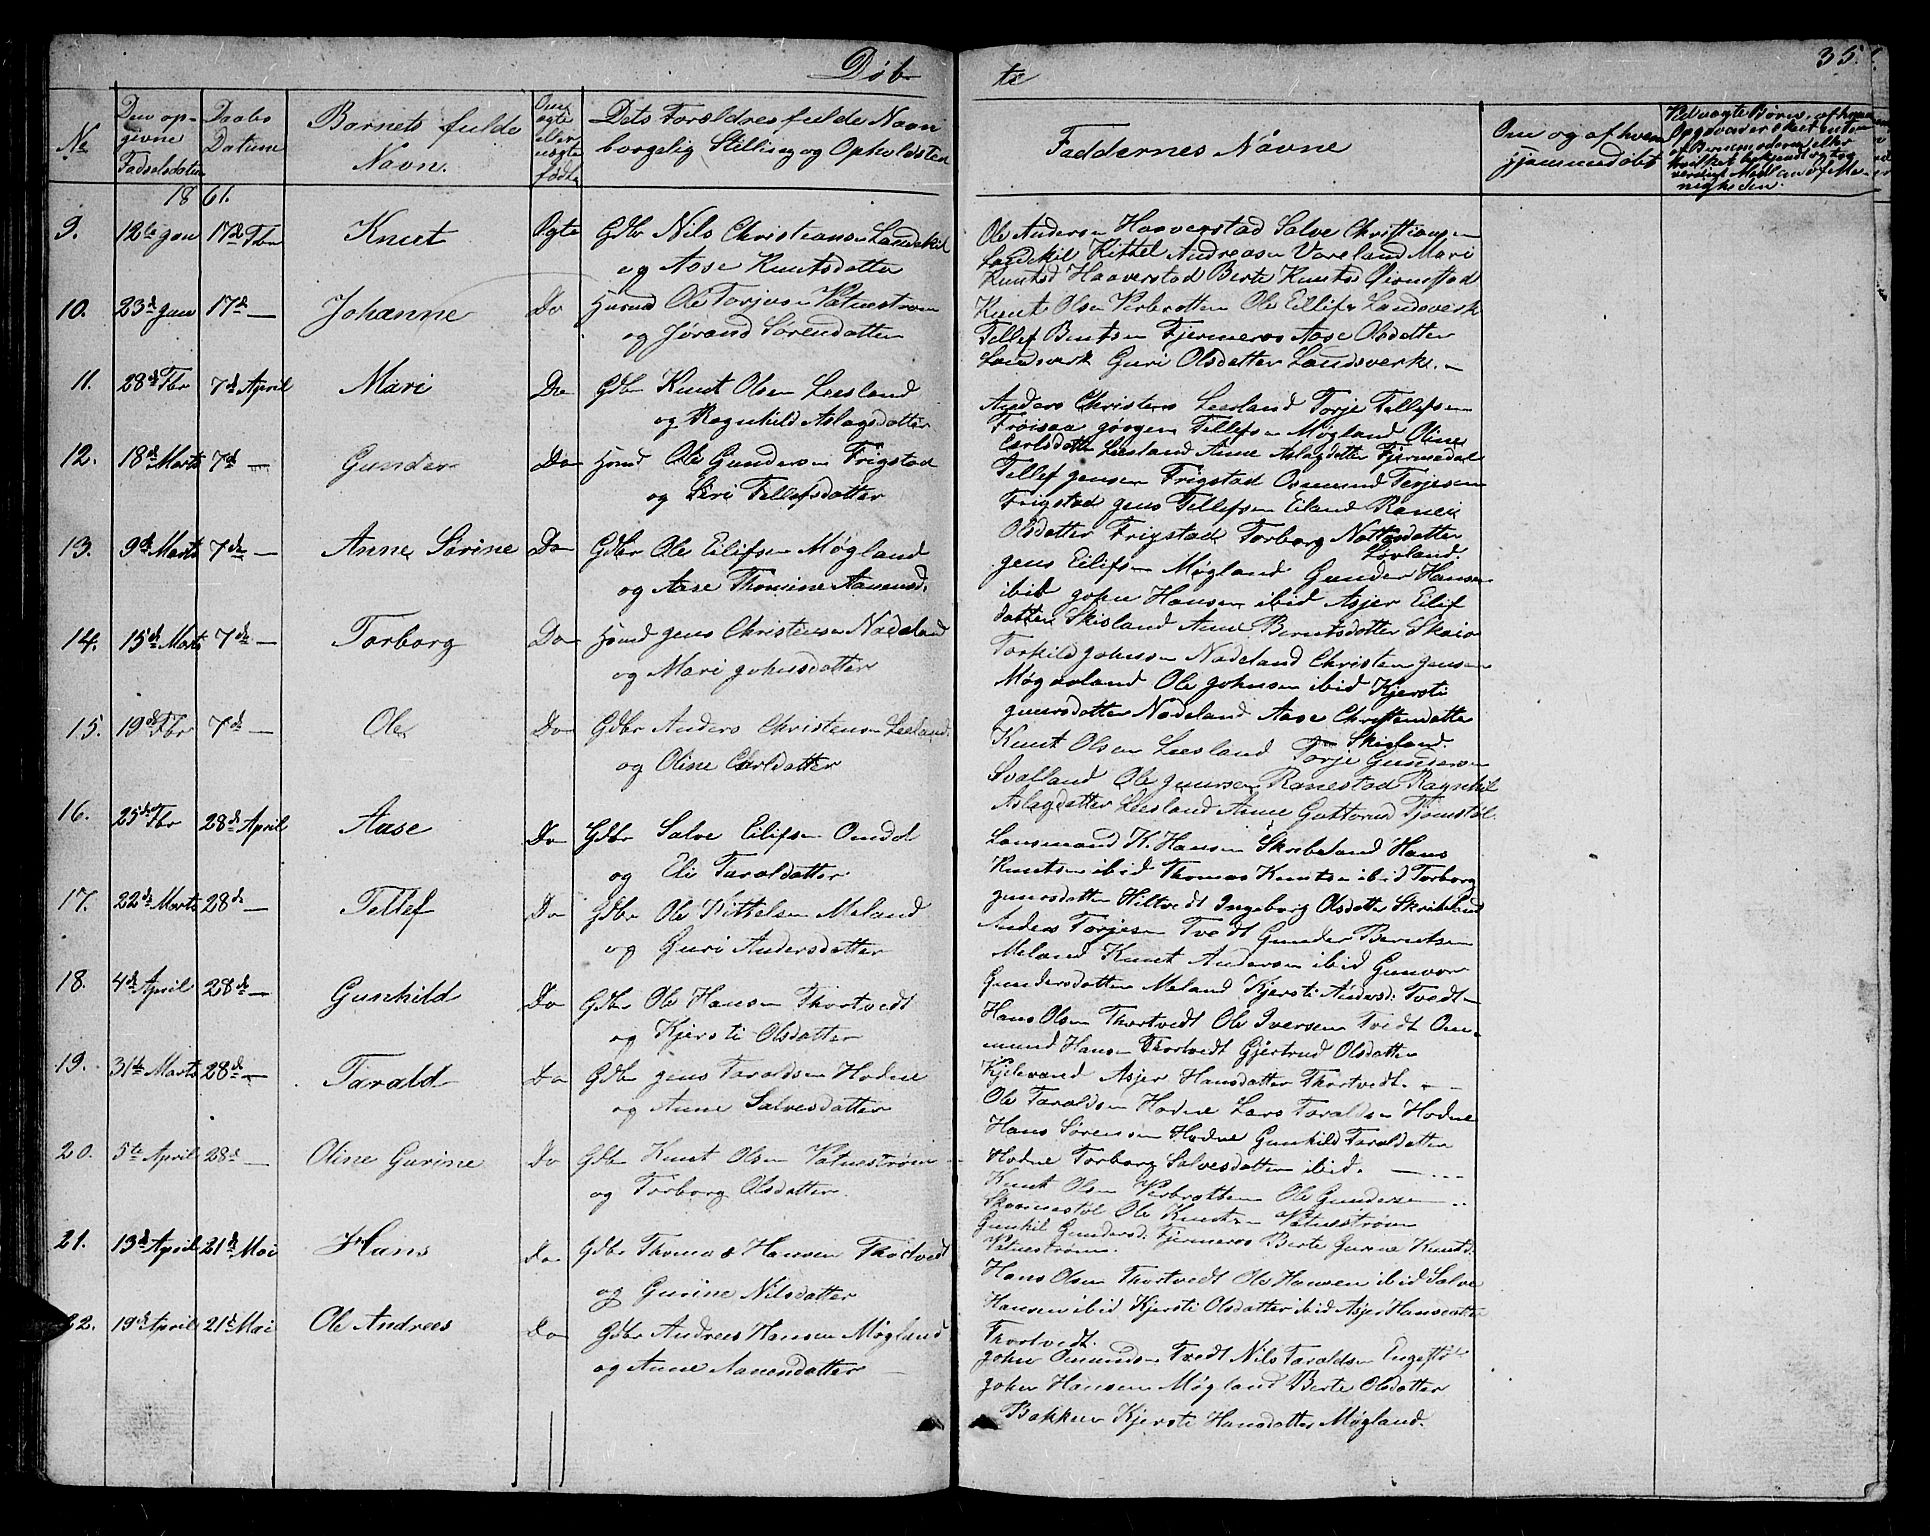 Døb-
te
35.
No
Den op-
givne
Fødselsdatum
Daabs
Datum
Barnets fulde
Navn.
Om
ægte
eller
uægte
født
Dets Forældres fulde Navn
borgelig Stilling og Opholdsted
Faddernes Navne
Om og af hvem
hjemmedøbt
1861.
9. 12te Jan 17de Fbr Knut Ægte Gdbr Nils Christiansen Landskil
og Aase Knutsdatter
Ole Andersen Haaverstad Salve Christiansen
Landskil Kittel Andreasen Voreland Mari
Knutsd Haaverstad Berte Knutsd
10. 23de Jan 17de — Johanne Do Huusmd Ole Torjusen Vatnestrøm
og Jørand Sørensdatter
Knut Olsen Verbrotten Ole Eilifs Landsverk
Tellef Bentsen Fjermeros Aase Olsdatter
Landsverk Guri Olsdatter Landsverk. —
11. 28de Fbr 7de April Mari Do Gdbr Knut Olsen Leesland
og Ragnhild Aslagsdatter
Anders Christens Leesland Torje Tellefsen
Frøisaa Jørgen Tellefsen Møgland Oline
Carlsdatter Leesland Anne Aslagsdatter Fjermedal
12. 18de Marts 7de — Gunder Do Huusmd Ole Gundersen Frigstad
og Siri Tellefsdatter
Tellef Jensen Frigstad Osmund Terjesen
Frigstad Jens Tellefsen Eiland Ranei
Olsdatter Frigstad Torborg Nottosdatter
Løvland.
13. 9de Marts 7de — Anne Sørine Do Gdbr Ole Eilifsen Møgland
og Aase Thomine Aanensd.
Jens Eilifsen Møgland Gunder Hansen
ibid John Hansen ibid Asjer Eilif
datter Skisland Anne Berntsdatter Skaio
14. 15de Marts 7de — Torborg Do Huusmd Jens Christensen Nodeland
og Mari Johnsdatter
Torkild Johnsen Nodeland Christen Jensen
Møgland Ole Johnsen ibid Kjersti
Gunersdatter Nodeland Aase Christensdatter
Skisland.
15. 19de Fbr 7de — Ole Do Gdbr Anders Christensen Leeland.
og Oline Carlsdatter
Knut Olsen Leesland Torje Gundersen
Svalland Ole Gunersen Ranestad Ragnhil
Aslagdatter Leesland Anne Guttormsd Tjomstøl
16. 25de Fbr 28de April Aase Do Gdbr Salve Eilifsen Omdal
og Eli Taraldsdatter
Lensmand K. Hansen Skribeland Hans
Knutsen ibid Thomas Knutsen ibid Torborg
Gunersdatter Hiltvedt Ingeborg Olsdatter Skribeland
17. 22de Marts 28de — Tellef Do Gdbr Ole Kittelsen Meland
og Guri Andersdatter
Anders Torjesen Tvedt Gunder Berntsen
Meland Knut Andersen ibid Gunvor
Gundersdatter Meland Kjersti Andersd: Tvedt —
18. 4de April 28de — Gunhild Do Gdbr Ole Hansen Thortvedt
og Kjersti Olsdatter
Hans Olsen Thortvedt Ole Iversen Tvedt Om-
mund Hansen Thortvedt Gjertrud Olsdatter
Kjelevand Asjer Hansdatter Thortvedt. —
19. 31te Marts 28de — Tarald Do Gdbr Jens Taraldsen Hodne
og Anne Salvesdatter
Ole Taraldsen Hodne Lars Taraldsen Hodne
Hans Sørensen Hodne Gunhild Taraldsdatter
Hodne Torborg Salvesdatter ibid. —
20. 5te April 28de — Oline Gurine Do Gdbr Knut Olsen Vatnestrøm
og Torborg Olsdatter.
Knut Olsen Verbrotten Ole Gundersen
Skomestøl Ole Knutsen Vatnestrøm
Gunhil Gundersd. Fjermeros Berte Gurine Knutsd.
Vatnestrøm.
21. 13de April 21de Mai Hans Do Gdbr Thomas Hansen Thortvedt
og Gurine Nilsdatter
Hans Olsen Thortvedt Ole Hansen ibid Salve
Hansen ibid Kjersti Olsdatter ibid Asjer Hansdatter
Thortvedt.
22. 19de April 21de Mai Ole Andreas Do Gdbr Andreas Hansen Møgland
og Anne Aanensdatter —
John Omundsen Tvedt Nils Taraldsen
John Hansen Møgland Berte Olsdatter
Bakken Kjersti Hansdatter Møgland.